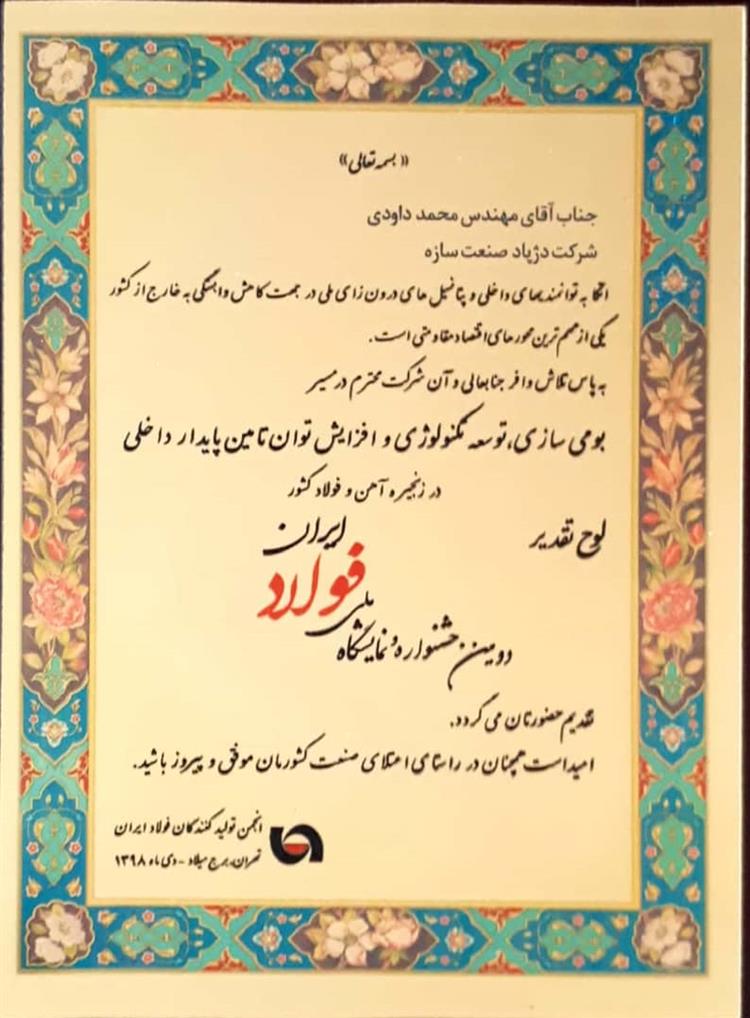 « بسمه تعالی »
جناب آقای مهندس محمد داودی
شرکت دژپاد صنعت سازه
اتکا به توانمندیهای داخلی و پتانسیل های درون زای ملی در جهت کاهش وابستگی به خارج از کشور
یکی از مهم ترین محورهای اقتصاد مقاومتی است.
به پاس تلاش وافر جنابعالی و آن شرکت محترم در مسیر
بومی سازی، توسعه تکنولوژی و افزایش توان تامین پایدار داخلی
در زنجیره آهن و فولاد کشور
لوح تقدیر
دومین جشنواره و نمایشگاه
ملی
فولاد
ایران
تقدیم حضورتان می گردد.
امید است همچنان در راستای اعتلای صنعت کشورمان موفق و پیروز باشید.
انجمن تولید کنندگان فولاد ایران
تهران، برج میلاد - دی ماه ۱۳۹۸